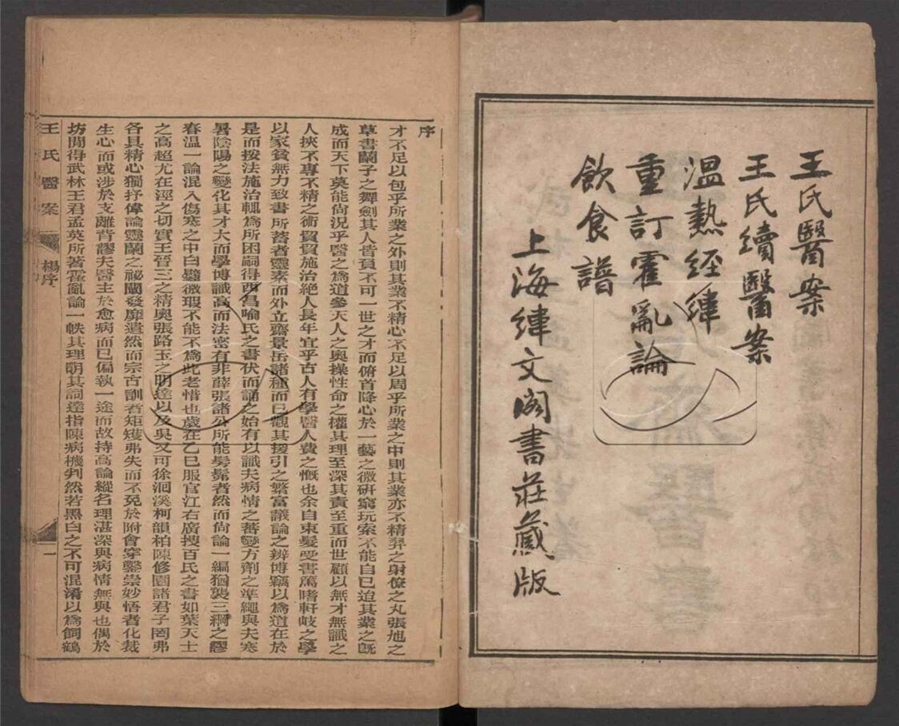 王氏醫案
王氏續醫案
溫熱經緯
重訂霍亂論
飲食譜
上海緯文閣書莊藏版
序
才不足以包乎所業之外則其業不精心不足以周乎所業之中則其業亦不精羿之射僚之丸張旭之
草書蘭子之舞劍其人皆負不可一世之才而俯首降心於一藝之微研窮玩索不能自已迨其業之旣
成而天下莫能尙況乎醫之爲道參天人之奧操性命之權其理至深其責至重而世顧以無才無識之
人挾不專不精之術貿貿施治絕人長年宜乎古人有學醫人費之慨也余自束髮受書薄嗜軒岐之學
以家貧無力致書所蓄者靈素而外立齋景岳諸種而已觀其援引之繁富議論之辨博竊以爲道在於
是而按法施治輒爲所困嗣得西昌喻氏之書伏而誦之始有以識夫病情之蕃變方劑之準繩與夫寒
暑陰陽之變化其才大而學博識高而法密有非薛張諸公所能髣髴者然而尙論一編猶襲三綱之謬
春溫一論混入傷寒之中白璧微瑕不能不爲此老惜也歲在乙巳服官江右廣搜百氏之書如葉天士
之高超尤在涇之切實王晉三之精奧張路玉之明達以及吳又可徐洄溪柯韻柏陳修園諸君子罔弗
各具精心獨抒偉論靈蘭之祕闡發靡遺然而宗古訓者矩矱弗失而不免於附會穿鑿崇妙悟者化裁
生心而或涉於支離背謬夫醫主於愈病而已偏執一途而故持高論縱名理湛深與病情無與也偶於
坊間得武林王君孟英所著霍亂論一帙其理明其詞達指陳病機判然若黑白之不可混淆以爲飼鶴
王氏醫案 楊序 一